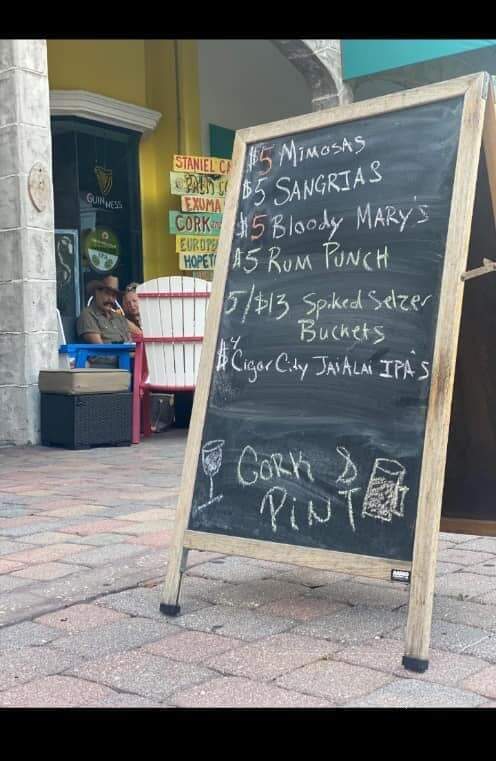 GUINNESS
STANIEL CA
EXUMA
CORK
EUROPE
HOPET
$5 MIMOSAS
$5 SANGRIAS
$5 Bloody MARY'S
$5 RUM PUNCH
5/$13 Spiked Selzer
Buckets
$4 Cigar City JAiALAi IPA'S
CORK &
PINT